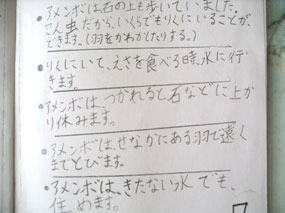 アメンボは石の上も歩いていました。
こん虫だから、いくらでもりくにいることが
できます。(羽をかわかしたりする。)
・りくにいて、えさを食べる時、水に行
きます。
・アメンボは、つかれると、石などに上が
り休みます。
・アメンボは、せなかにある羽で遠く
までとびます。
・アメンボは、きたない水でも、
住めます。